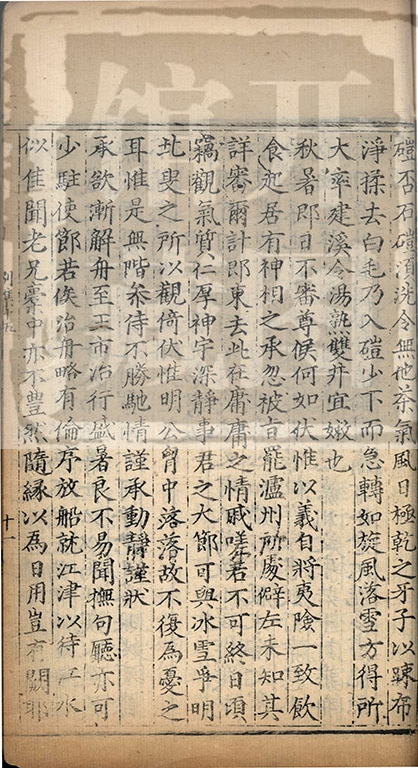 磑否石磑須洗令無他茶氣風日極乾之牙子以踈布
淨揉去白毛乃入磑少下而急轉如旋風落雪方得所
大率建溪令湯熟雙井宜嫩也
秋暑即日不審尊候何如伏惟以義自將夷險一致飲
食起居有神相之承忽被旨罷瀘州所處僻左未知其
詳審爾計即東去此在庸庸之情戚嗟若不可終日頃
竊觀氣質仁厚神宇深靜事君之大節可與冰雪爭明
此叟之所以觀倚伏惟明公胷中落落故不復為憂之
耳惟是無階参待不勝馳情謹承動靜謹狀
承欲漸解舟至王市冶行盛暑良不易聞撫句廳亦可
少駐使節若俟冶舟略有倫序放船就江津以待江水
似佳聞老兄橐中亦不豊然隨緣以為日用豈有闕耶
別集十九
十一